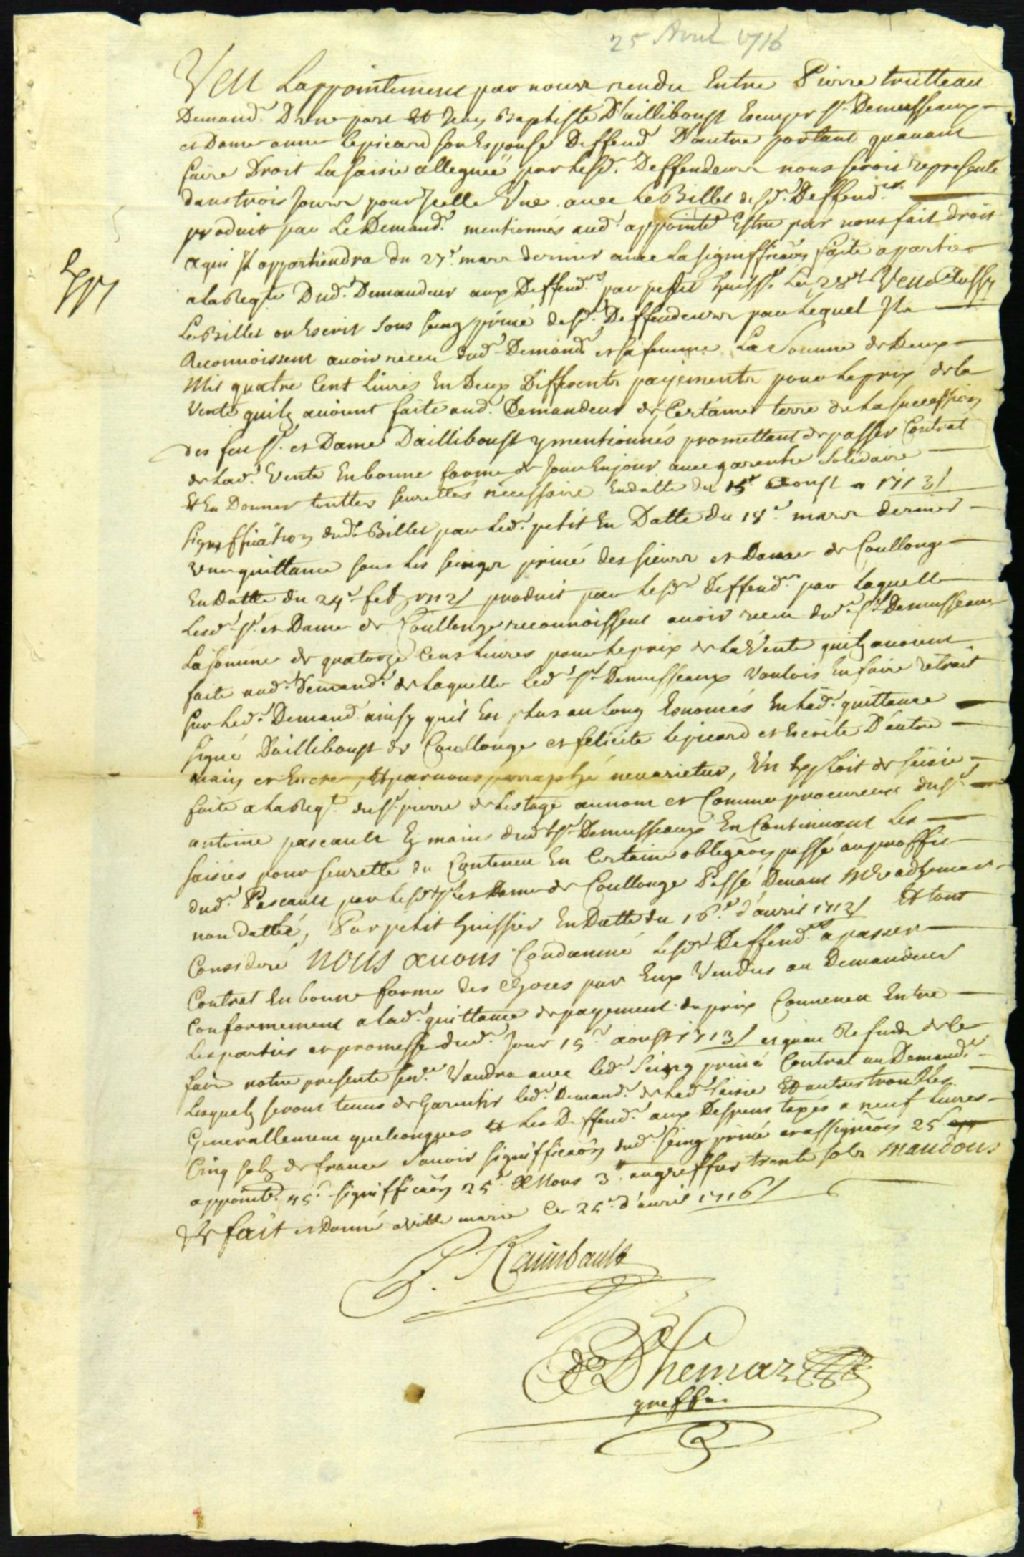 25 Avril 1716
Veu Lappointement par nous rendu Entre Pierre trutteau
Demand.r Dune part Et Jean Baptiste Dailliboust Escuyer Sr. Demusseaux
et Dame anne lepicard son Espouse Deffend.rs Dautre portant quavant
faire Droit La saisie alleguée par lesd. Deffendeurs nous serois representé
dans trois Jours pour Icelle Vue avec Le Billet desd. Deffend.rs
produit par Le Demand.r mentionnés aud. appointé Estre par nous fait droit
a qui Il appartiendra du 27.e mars dernier avec La signifficaon faite a partie
a la Reqte Dud. Demandeur aux Deffend.rs par petit huiss.r Le 28.e Veu Aussy
Le Billet ou Escrit sous seing privé desd. Deffendeurs par Lequel Ils
Reconnoissent avoir receu dud. Demand.r et sa femme La somme de Deux
Mil quatre Cent Livres En Deux Differents payements pour le prix de la
Vente quilz avoient faite aud. Demandeur de Certaines terre de la succession
des feu Sr. et Dame Dailliboust y mentionnés promettant de passer Contrat
de lad. Vente En bonne forme de Jour En jour avec garentie solidaire
Et En Donner touttes seurettés necessaire En datte du 15.e Aoust 1713/
Signiffication dud. Billet par led. petit En Datte du 18.e mars dernier
Une quittance sous les seings privé des sieurs et Dame de Coullonge
En Datte du 24.e feb. 1712/ produit par lesd. Deffend.rs par Laquelle
Lesd. Sr. et Dame de Coullonge reconnoissent avoir receu dud. Sr. Demusseaux
La somme de quatorze Cens Livres pour le prix de la Vente quilz avoient
faite aud. Demand.r de Laquelle led. Sr. Demusseaux Vouloit En faire retrait
sur led. Demand.r ainsy quil Est plus au long Enoncés En lad. quittance
signé Dailliboust de Coullonge et felicité lepicard et Escrite D'autre
main et Encre, Et par nous paraphé nevarietur, Un Exploit de saisie
faite a la Req.te du Sr. pierre de Lestage au nom et Comme procureur du Sr.
antoine pascault Es mains dud. Sr. Demusseaux En Continuant Les
saisies pour seuretté du Contenu En Certaine obligaon passé au proffit
dud. Pascault par lesd. Sr. et Dame de Coullonge Passé Devant Me adhemar
non datteé, Par petit huissier En Datte du 16.e d'avril 1712/ Et tout
Consideré Nous avons Condamné lesd. Deffend.rs a passer
Contrat En bonne forme des Choses par Eux Vendus au Demandeur
Conformement a lad. quittance de payement du prix Convenu Entre
Les parties et promesse dud. Jour 15.e aoust 1713/ et quau Refus de ce
faire notre presente Sen.ce Vaudra avec led. Seing privé Contrat au Demand.r
Lesquelz seront tenus de Garentir led. Demand.r de lad. saisie Et autres troubles
Generallement quelconques Et les Deffend.rs aux Despens taxés a neuf Livres
Cinq sols de france savoir signifficaon dud. seing privé et assignaon 25s
appointé 45s. signifficaon 25s. A Nous 3# au greffier trente sols Mandons
&c fait et Donné a Ville marie Ce 25.e d'avril 1716/
P. Raimbault
Adhemar
greffier